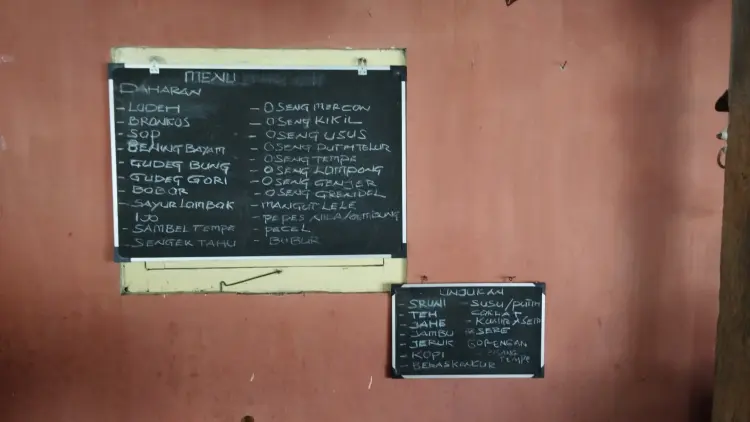 MENU
DAHARAN
- LODEH
- BRONGKOS
- SOP
- BENING BAYAM
- GUDEG BUNG
- GUDEG GORI
- BOBOR
- SAYUR LOMBOK
IJO
- SAMBEL TEMPE
- SENGEK TAHU
- OSENG MERCON
- OSENG KIKIL
- OSENG USUS
- OSENG PUTIH TELUR
- OSENG TEMPE
- OSENG LOMPONG
- OSENG GENJER
- OSENG GRENDEL
- MANGUT LELE
- PEPES
- PECEL
- BUBUR
UNJUKAN
- SRUNI
- TEH
- JAHE
- JAMBU
- JERUK
- KOPI
- BERASKENCUR
- SUSU/PUTIH
COKLAT
- KUNIR ASEM
- SERE
GORENGAN
TEMPE